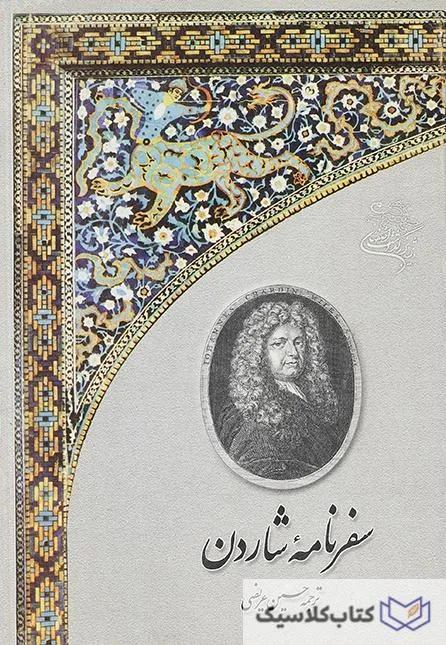 IOHANNES CHARDIN
سفرنامهٔ شاردن
ترجمهٔ حسین عریضی
کتاب کلاسیک